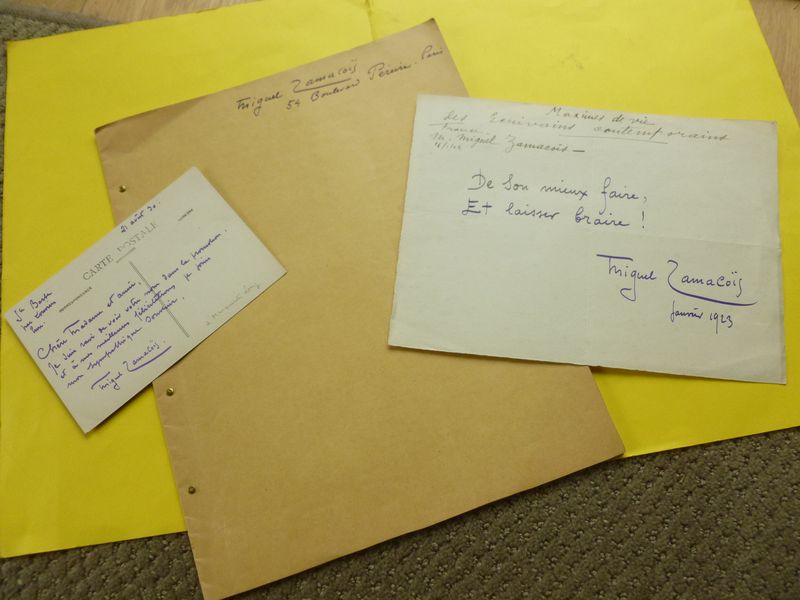 Miguel Zamacoïs
54 Boulevard Pereire. Paris
Maximes de vie
des Ecrivains contemporains
France
M. Miguel Zamacoïs —
De son mieux faire,
Et laisser braire !
Miguel Zamacoïs
Janvier 1923
21 août 30.
CARTE POSTALE
CORRESPONDANCE
ADRESSE
La
par
Chère Madame et amie,
Je suis ravi de voir votre nom dans la promotion,
et à mes meilleures félicitations je joins
mon sympathique souvenir.
Miguel Zamacoïs.